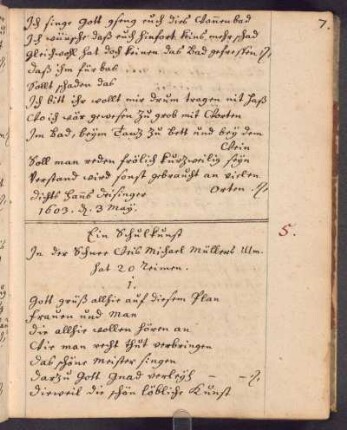 7.
Ich singe Gott gseng euch dies Wannenbad
Ich wünsche daß euch hinfort keins mehr schad
Gleichwohl hat doch keinen das Bad gefressen
daß ihm für bas
Sollt schaden das
Ich bitt ihr wollt mir drum tragen nit Haß
Wo ich wär gewesen zu grob mit Worten
Im Bad, beym Tantz zu bett und bey dem
Wein
Soll man reden frölich kurzweilig seyn
Verstand wird sonst gebraucht an vielen
Orten.
dichts Hans
1603. d. 3 May.
5.
Ein Schulkunst
In der Schnee Weis Michael Müllers Ulm.
hat 20 Reimen.
1.
Gott grüß allhie auf diesem Plan
Frauen und Man
die allhie wollen hören an
Wie man recht thut verbringen
das schöne Meister singen
darzu Gott Gnad verleyh
dieweil die schön löbliche Kunst